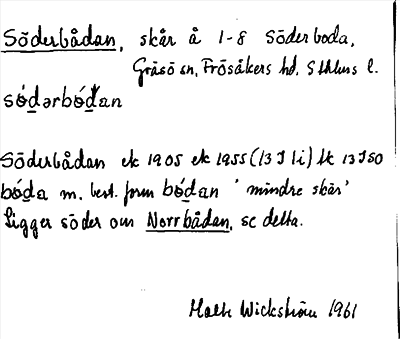 Söderbådan, skär å 1-8 Söderboda,
Gräsö sn, Frösåkers hd, Sthlms l.
só̲d̲ərbó̲d̲an
Söderbådan ek 1905 ek 1955 (13 I 1i) tk 13 I 50
bó̲d̲a m. best. form bó̲d̲an 'mindre skär'
Ligger söder om Norrbådan, se detta.
Wickström 1961